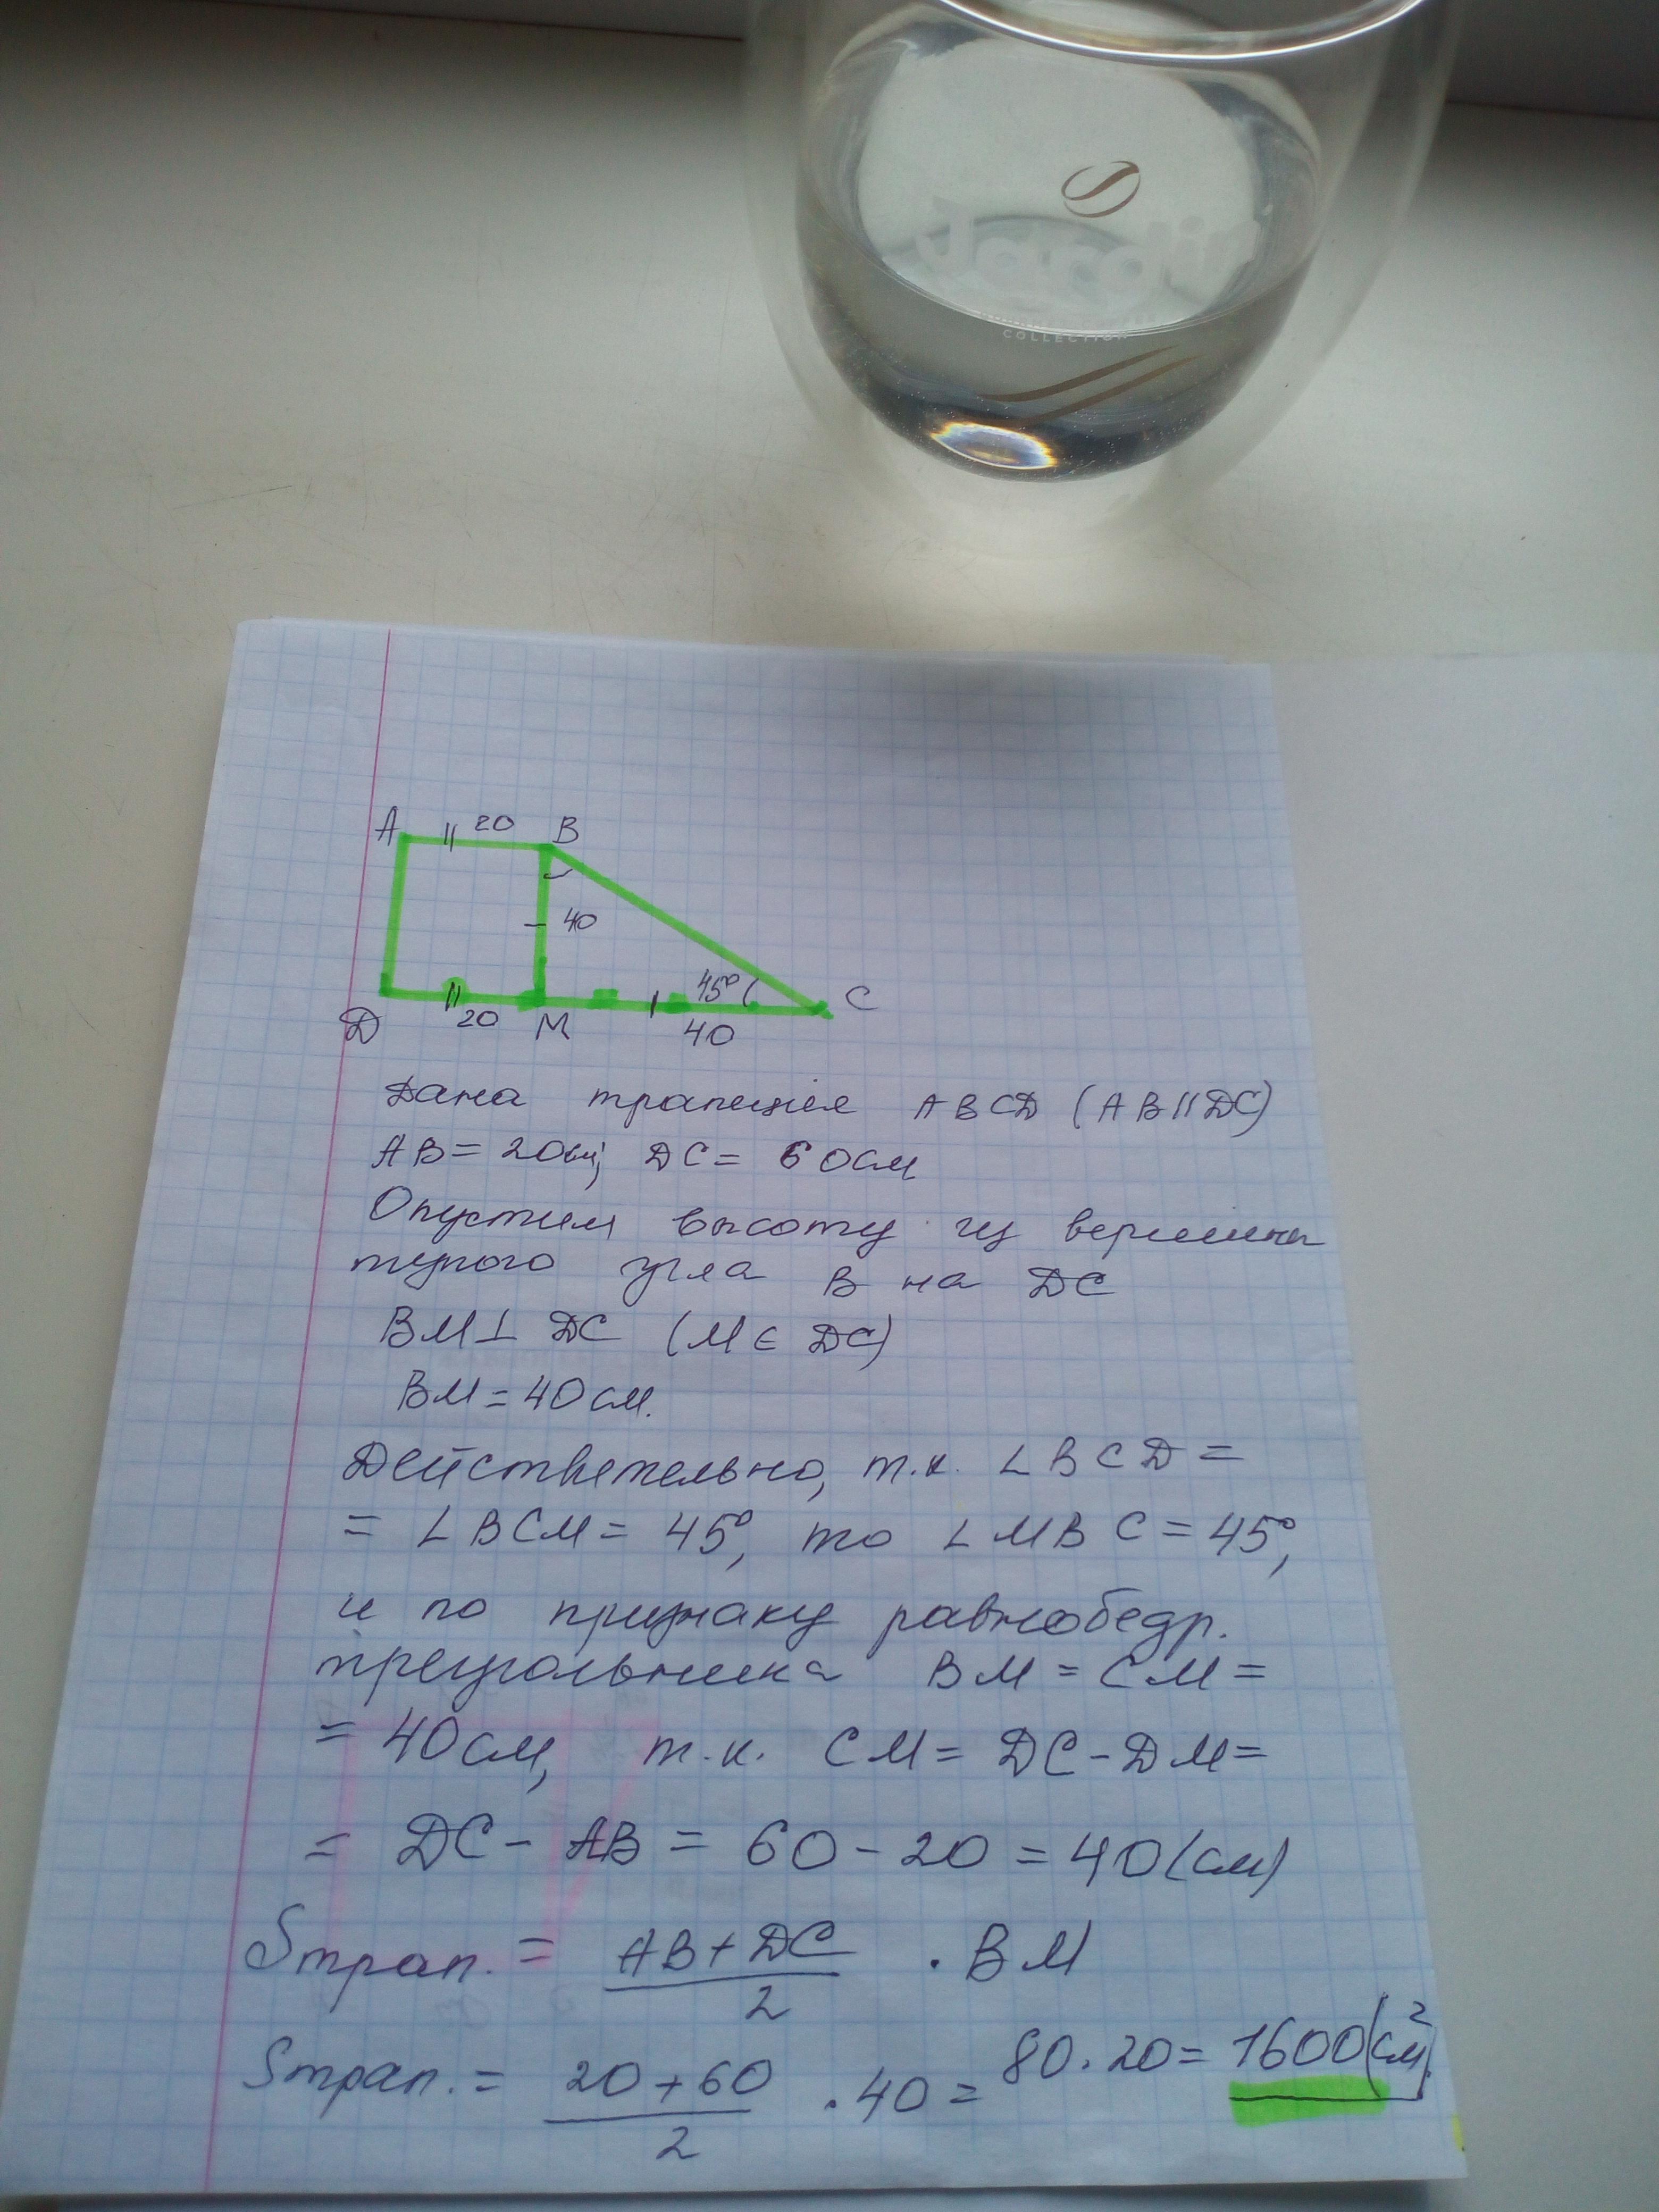 Jardin
COLLECTION
A 20 B
40
45°
C
D 20 M 40
Дана трапеция ABCD (AB||DC)
AB = 20см; DC = 60см
Опустим высоту из вершины
тупого угла B на DC
BM⊥ DC (M ∈ DC)
BM = 40см.
Действительно, т.к. ∠BCD =
= ∠BCM = 45°, то ∠MBC = 45°,
и по признаку равнобедр.
треугольника BM = CM =
= 40см, т.к. CM = DC - DM =
= DC - AB = 60 - 20 = 40(см)
Sтрап. = AB + DC / 2 · BM
Sтрап. = 20 + 60 / 2 · 40 = 80 · 20 = 1600(см²)